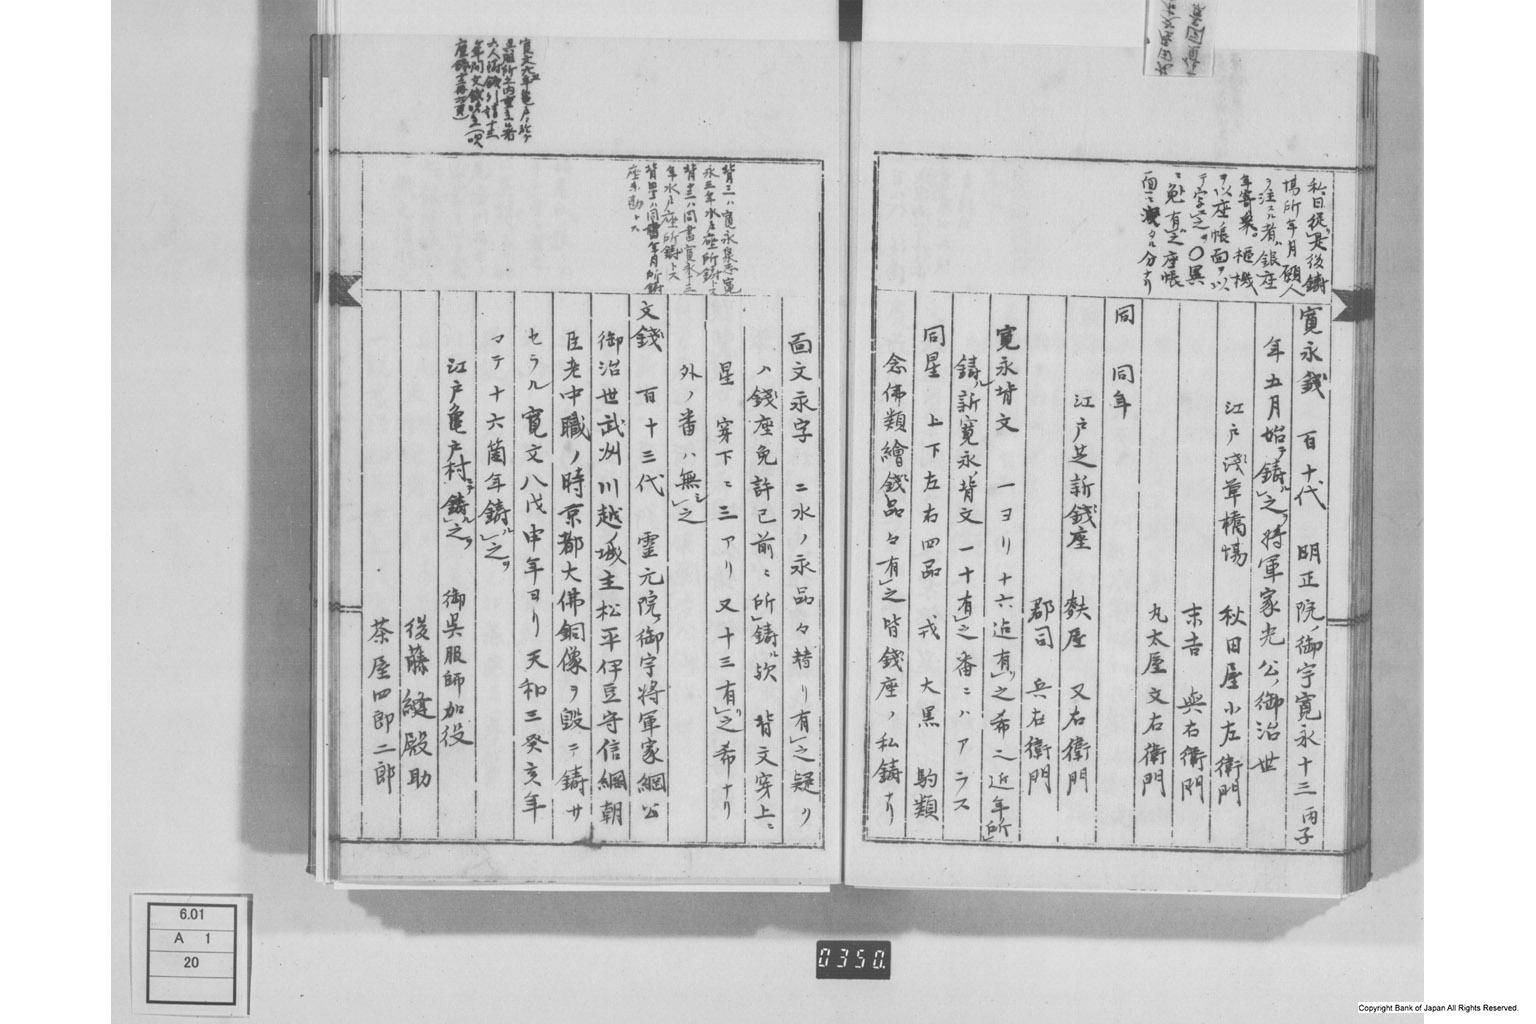 寛永錢 百十代 明正院ノ御宇寛永十三丙子
年五月始テ鋳ル之ヲ将軍家光公ノ御治世
江戸浅草橋場 秋田屋小左衛門
末吉 與右衛門
丸太屋文右衛門
同 同年
江戸芝新錢座 麩屋 又右衛門
郡司 兵右衛門
寛永背文 一ヨリ十六迠有リ之希ニ近年所
鋳ル新寛永背文一十有之番ニハアラス
同星 上下左右四品 戎 大黒 駒類
念佛類繪錢品々有之皆錢座ノ私鋳ナリ
私曰従是後鋳
場所年月願人
ヲ注スル者銀座
年寄衆 極機
ヲ以座帳面ヲ以
テ字之ヲ〇異
面ニ洩タル分ナリ
面文永字 二水ノ永品々替リ有之疑ク
ハ錢座免許已前ニ所鋳ル欤 背文穿上ニ
星 穿下ニ三アリ又十三有リ之希ナリ
外ノ番ハ無シ之
文錢 百十三代 霊元院ノ御宇将軍家綱公
御治世武州川越ノ城主松平伊豆守信綱朝
臣老中職ノ時京都大佛銅像ヲ毀テ鋳サ
セラル寛文八戊申年ヨリ天和三癸亥年
マテ十六箇年鋳ル之ヲ
江戸亀戸村ニテ鋳ル之ヲ 御呉服師加役
後藤縫殿助
茶屋四郎二郎
背三ハ寛永泉志寛
永五年水戸座所鋳ト云
背十三ハ同書寛永十三
年水戸座所鋳ト云
座不勘ト云
6.01
A 1
20
0350.
Copyright Bank of Japan All Rights Reserved.